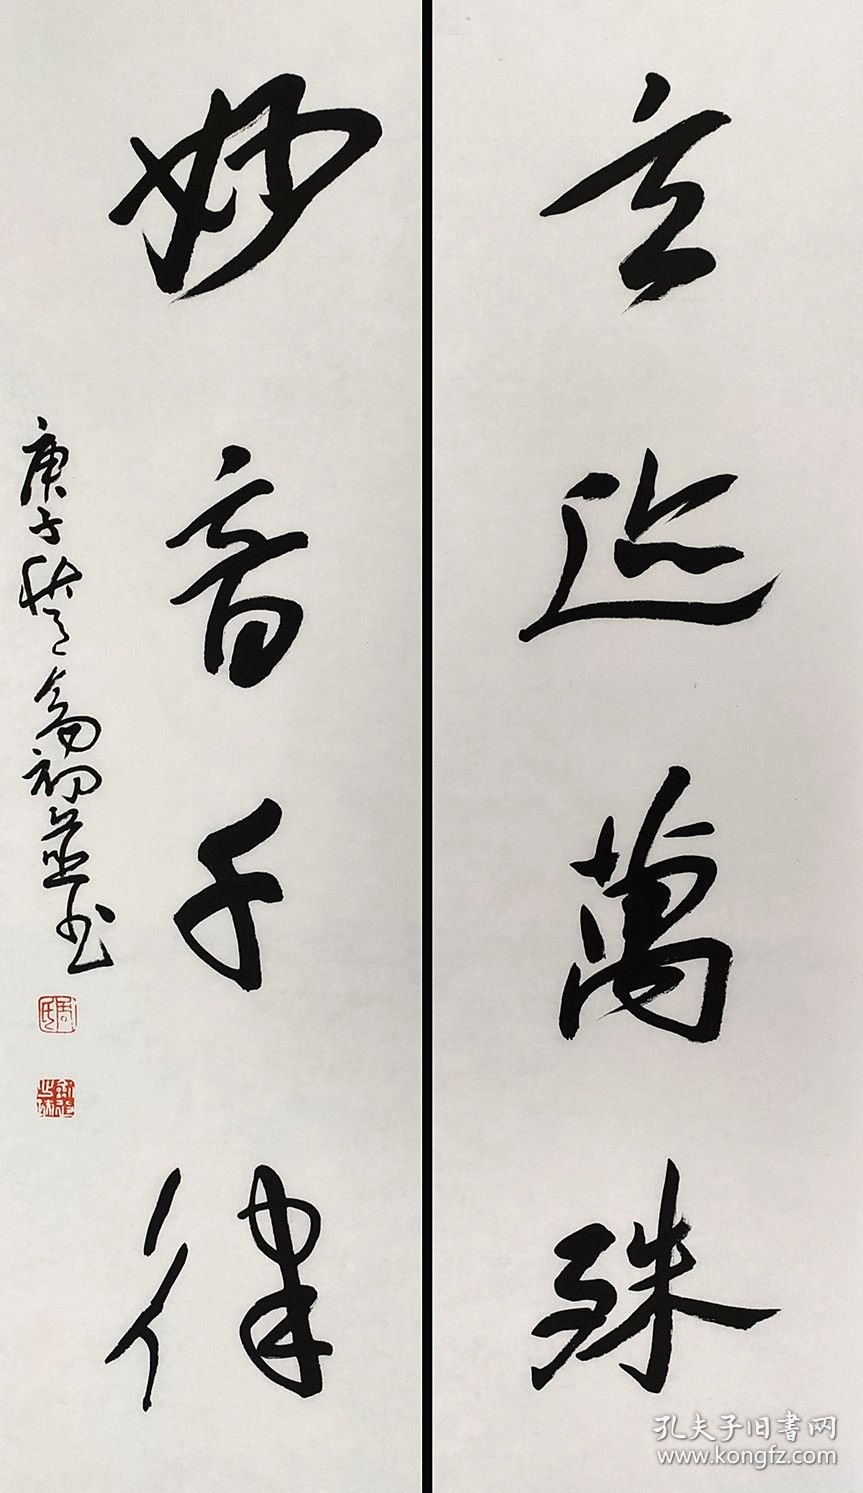 玄迹萬殊
妙音千律
庚子秋初书
孔夫子旧書网
www.kongfz.com